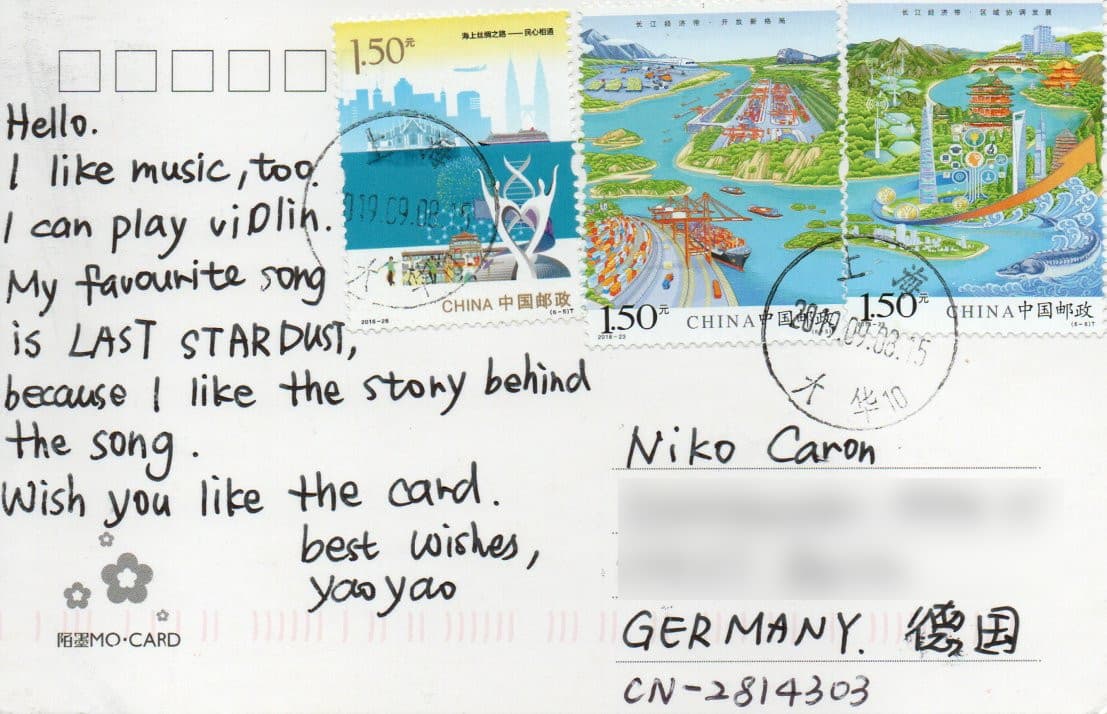 Hello.
I like music, too.
I can play violin.
My favourite song
is LAST STARDUST,
because I like the story behind
the song.
Wish you like the card.
best wishes,
yaoyao
陌墨MO·CARD
1.50元
海上丝绸之路——民心相通
CHINA 中国邮政
2016-26
(6-5)T
上海
2019.09.03.15
大华
长江经济带·开放新格局
1.50元
CHINA 中国邮政
2018-23
长江经济带·区域协调发展
1.50元
CHINA 中国邮政
(6-6)T
上海
2019.09.03.15
大华10
Niko Caron
GERMANY. 德国
CN-2814303